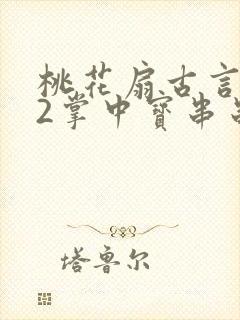 桃花扇古言
2掌中寶串
塔鲁尔